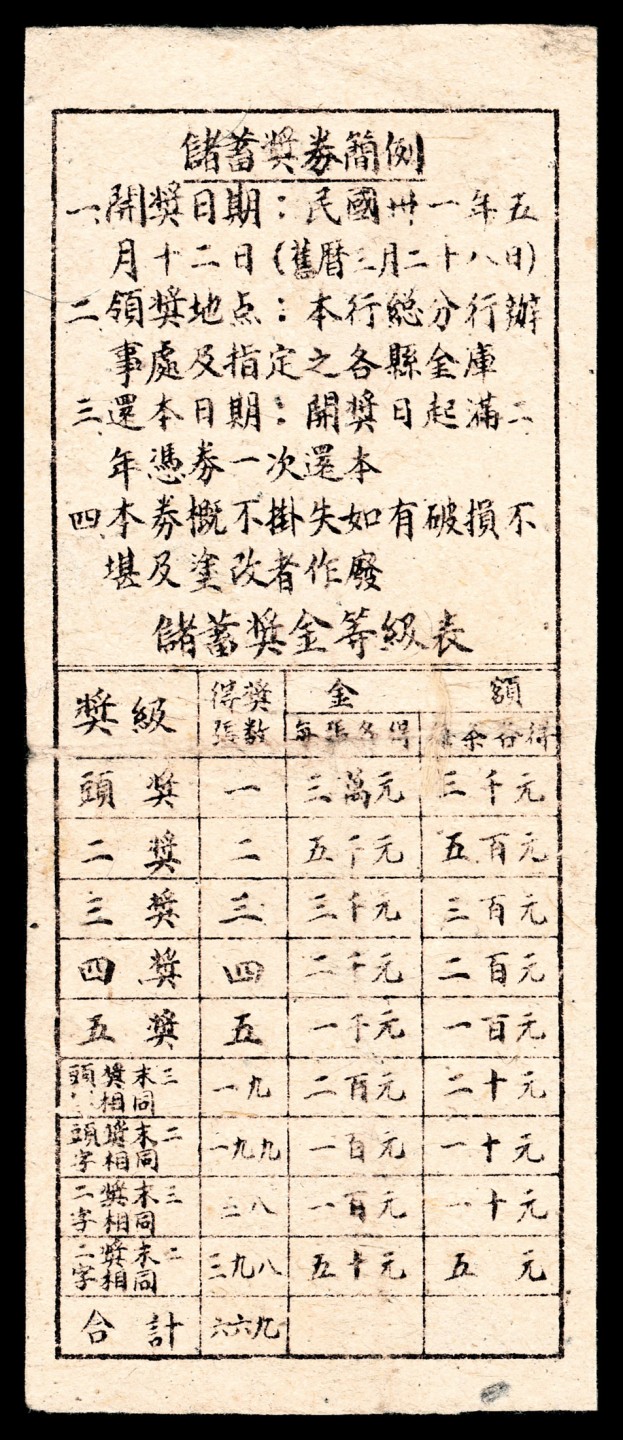 儲蓄獎券簡例
一、開獎日期：民國卅一年五
月十二日(舊曆三月二十八日)
二領獎地点：本行総分行辦
事處及指定之各縣金庫
三還本日期：開獎日起滿二
年憑券一次還本
四本券概不掛失如有破損不
堪及塗改者作廢
儲蓄獎金等級表
獎級 得獎張数 金額
每張各得 條各得
頭獎 一 三萬元 三千元
二獎 二 五千元 五百元
三獎 三 三千元 三百元
四獎 四 二千元 二百元
五獎 五 一千元 一百元
頭獎末三
相同 一九 二百元 二十元
頭獎末二
字相同 一九九 一百元 一十元
二獎末三
字相同 三八 一百元 一十元
二獎末二
字相同 三九八 五十元 五元
合計 六六九